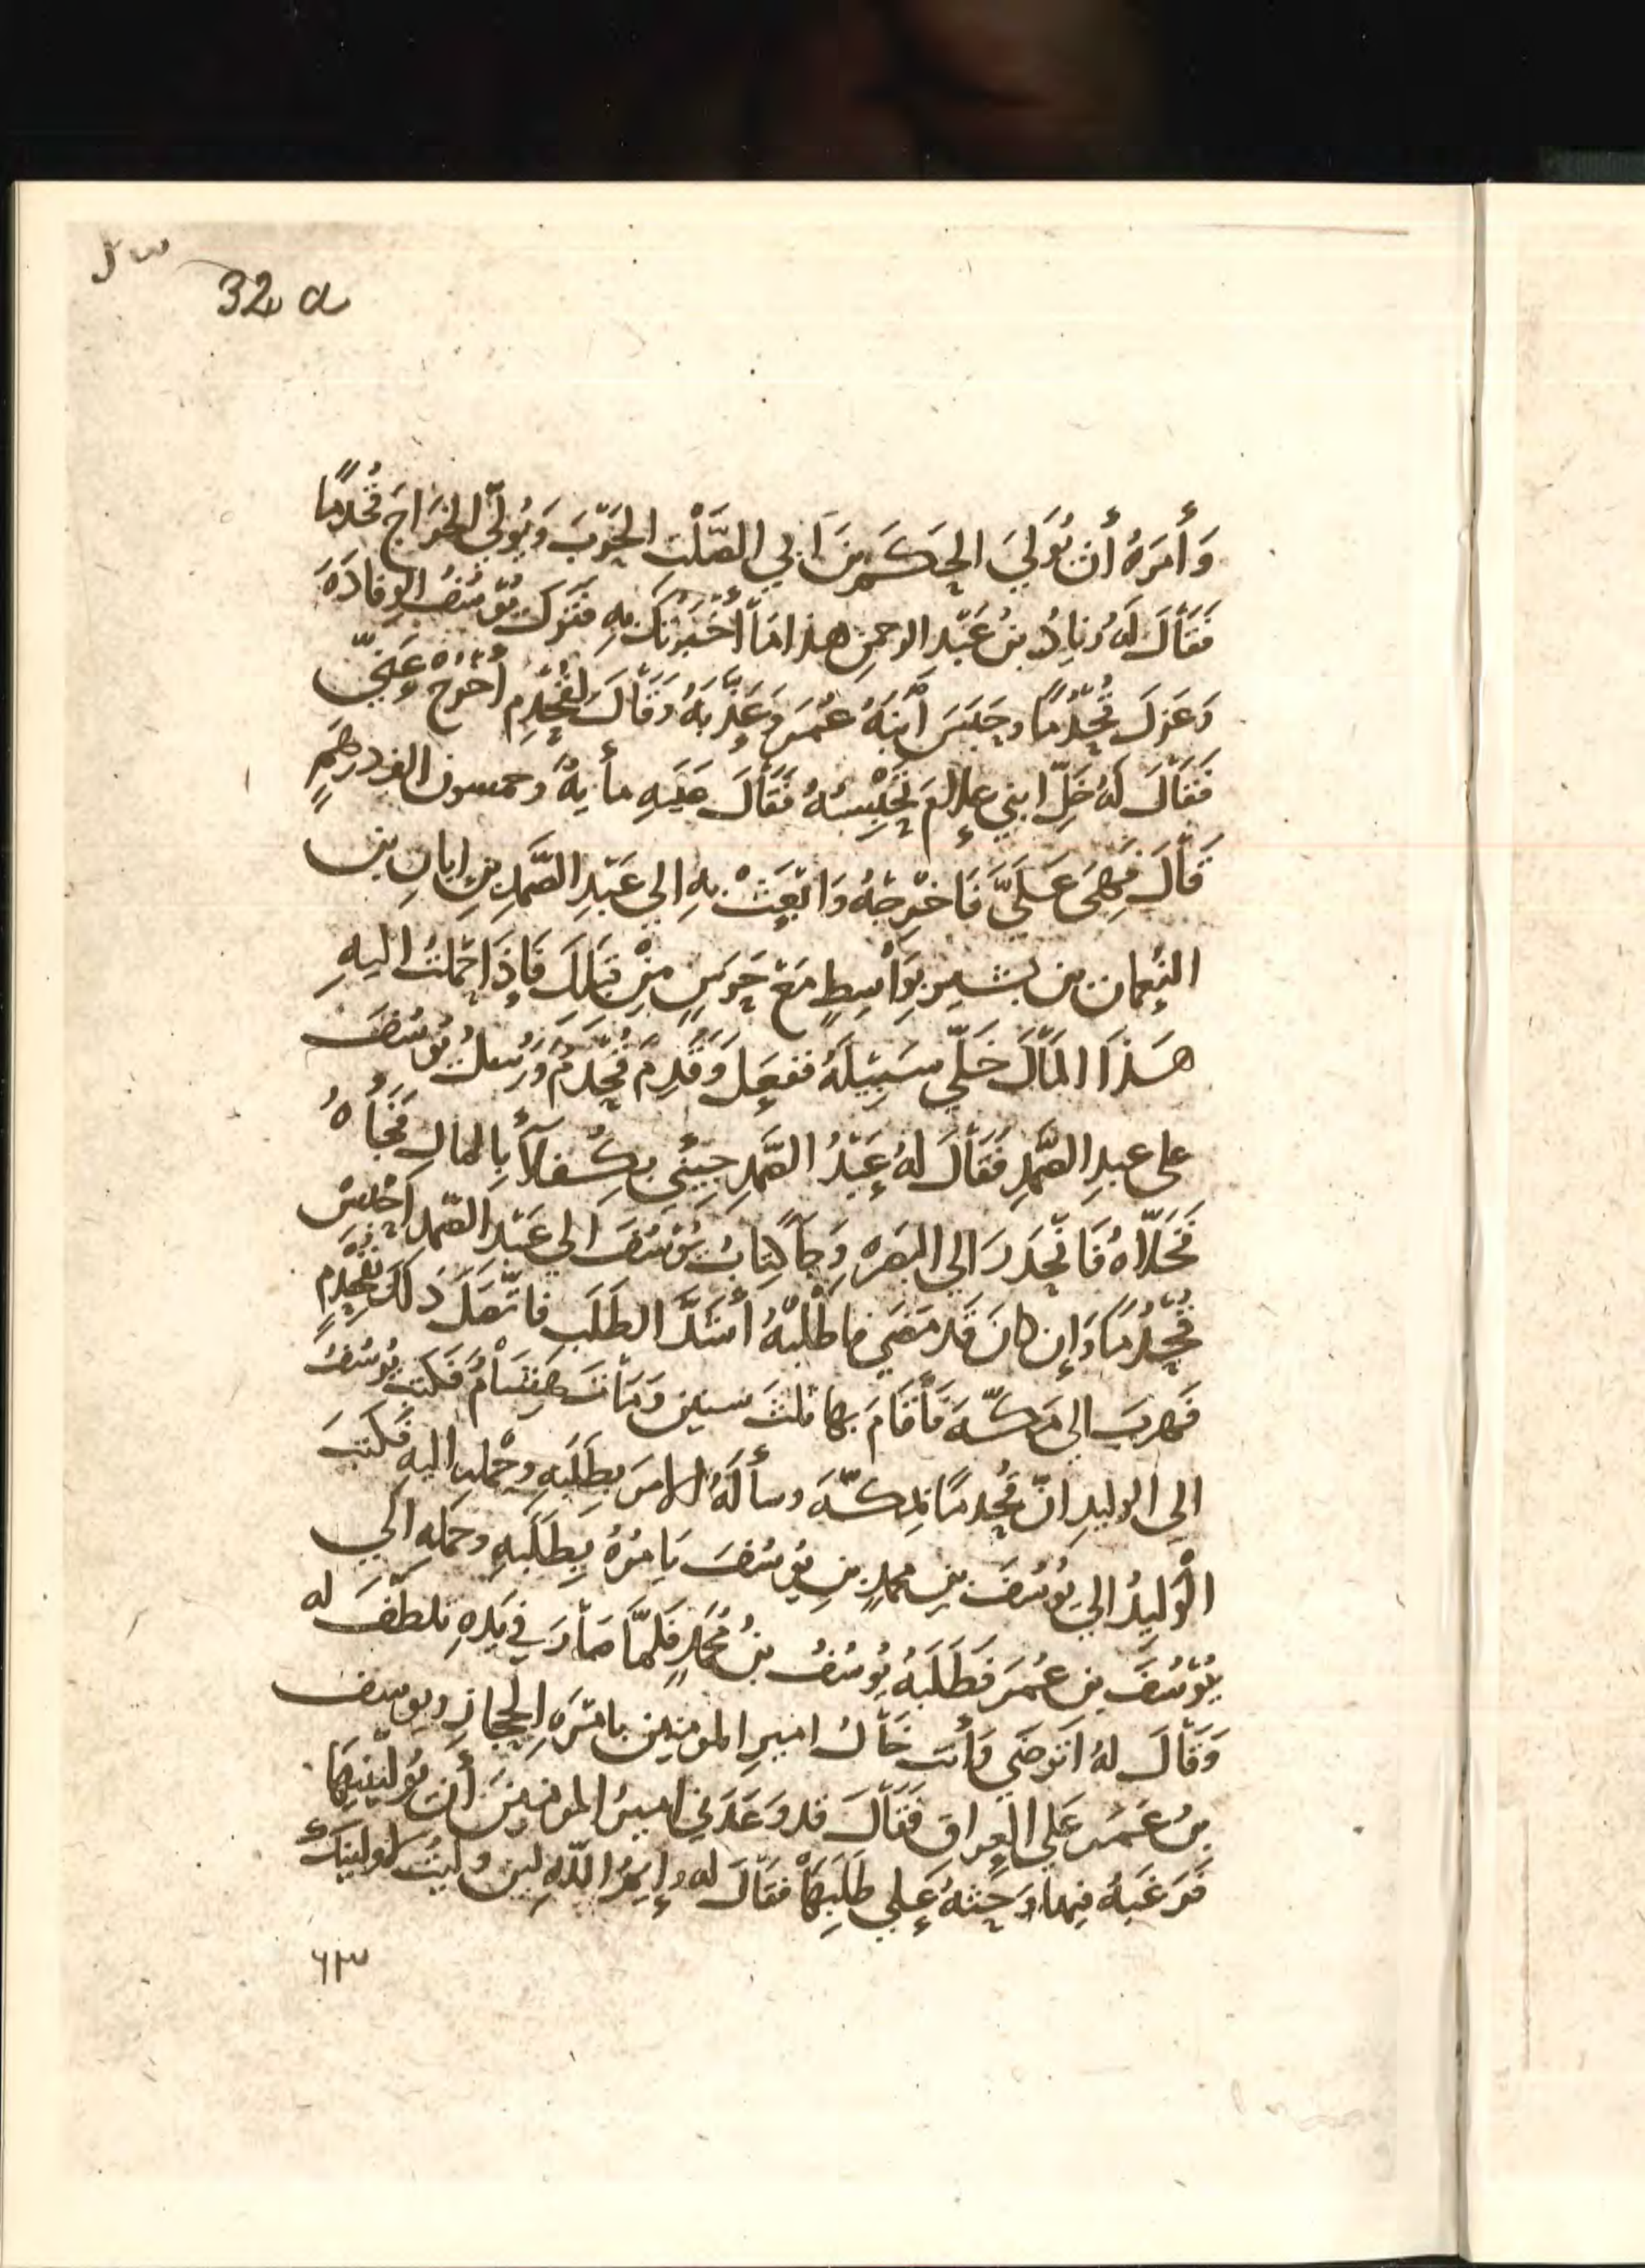 32 a
وَأَمَرَهُ أَن يُوَلِيَ الحَكَمَ بنَ اَبي الصَّلْت الحَرْبَ وَيُوَلّي الخَرَاجَ قُحْذُمًا
فَقَالَ لَهُ زيادُ بنُ عَبْد الرحمنِ هذا مَا أَخْبَرْتُكَ بِهِ فَتَرَكَ يُوْسُفُ الوِفَادَةَ
وَعَزَلَ قُحْذُمًا وحَبَسَ أبْنَهُ عُمَرَ وَعَذَّبَهُ وَقَالَ لِقُحْذُمٍ اخرج عَنّي
فَقَالَ لَهُ خَلِّ ابني عَلامَ تَحْبِسُهُ فَقَالَ عَلَيهِ مأيةٌ وخمسون الف درهَمٍ
قَالَ فَهِيَ عَلَيَّ فَاَخْرِجْهُ وَابْعَثْ بهِ الي عَبْدِ الصَّمَدِ بنِ ابانِ بن
النُعمان بن بشير بِوَاسِطٍ مَعَ حَرَسٍ مِنْ قِبَلِكَ فَاِذَا حَمَلتُ اليهِ
هَذَا المَالَ خَلَّي سَبِيْلَهُ ففعَلَ وَقَدِمَ قُحْذُمٌ وَرُسُلُ يُوسُفَ
على عبدِ الصَّمَدِ فَقَالَ لهُ عَبْدُ الصَّمَدِ جِيْني بِكُفَلآءَ بِالمال فَجَأهُ
فَخَلاَّهُ فَانْحَدَرَ الي البصره وَجآ كِتابُ يُوْسُفَ الي عَبْدِ الصّمد اَحْبِسْ
قُحْذُمًا وَإن كانَ قَد مَضَي فاطْلُبْهُ أَشَدَّ الطَلَبِ فاتّصَلَ ذَلكَ بقُحْذُمٍ
فَهربَ الي مَكّةَ فَأَقَامَ بها ثلثَ سنين وَمَاتَ هِشَامٌ فَكَتَبَ يُوسُفُ
الي الوليدِ انّ قُحْذُمًا بمكّةَ وسألَهُ الامرَ بِطَلَبِهِ وحَمْلِهِ اليهِ فَكَتَبَ
الْوَليدُ الي يُوسُفَ بنِ محمدِ بنِ يوسُفَ يَامُرُهُ بِطَلَبِهِ وحمله الَي
يُوْسُفَ بن عُمَرَ فَطَلَبَهُ يُوسُفُ بنُ مُحَمَّدٍ فَلَمَّا صَارَ في يَدِهِ تلطّفَ له
وَقَالَ لهُ اَتَرضَي وَأنتَ خَالُ اميرِ المومنين بامْرَةِ الحِجَازِ ويوسف
بنُ عُمَر عَلي العِراق فَقَالَ قد وَعَدَني اميرُ المومنينَ أَن يُوَلّيَنِيهَا
فَرَغّبَهُ فيها وَحَثهُ عَلي طَلَبِهَا فقَالَ له وايمُ اللّهِ لين وليتُ لاولينكَ
٦٣